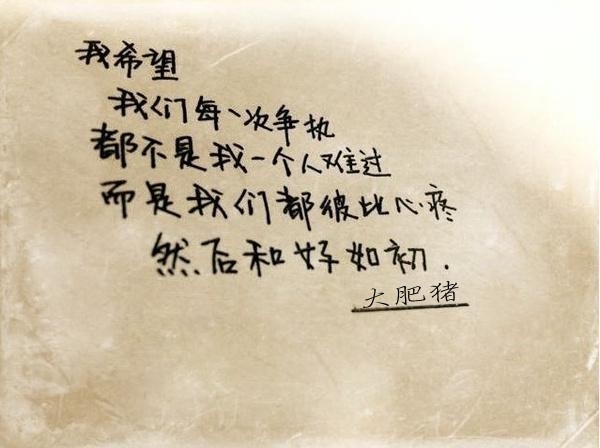 我希望
我们每一次争执
都不是我一个人难过
而是我们都彼比心疼
然后和好如初.
大肥猪